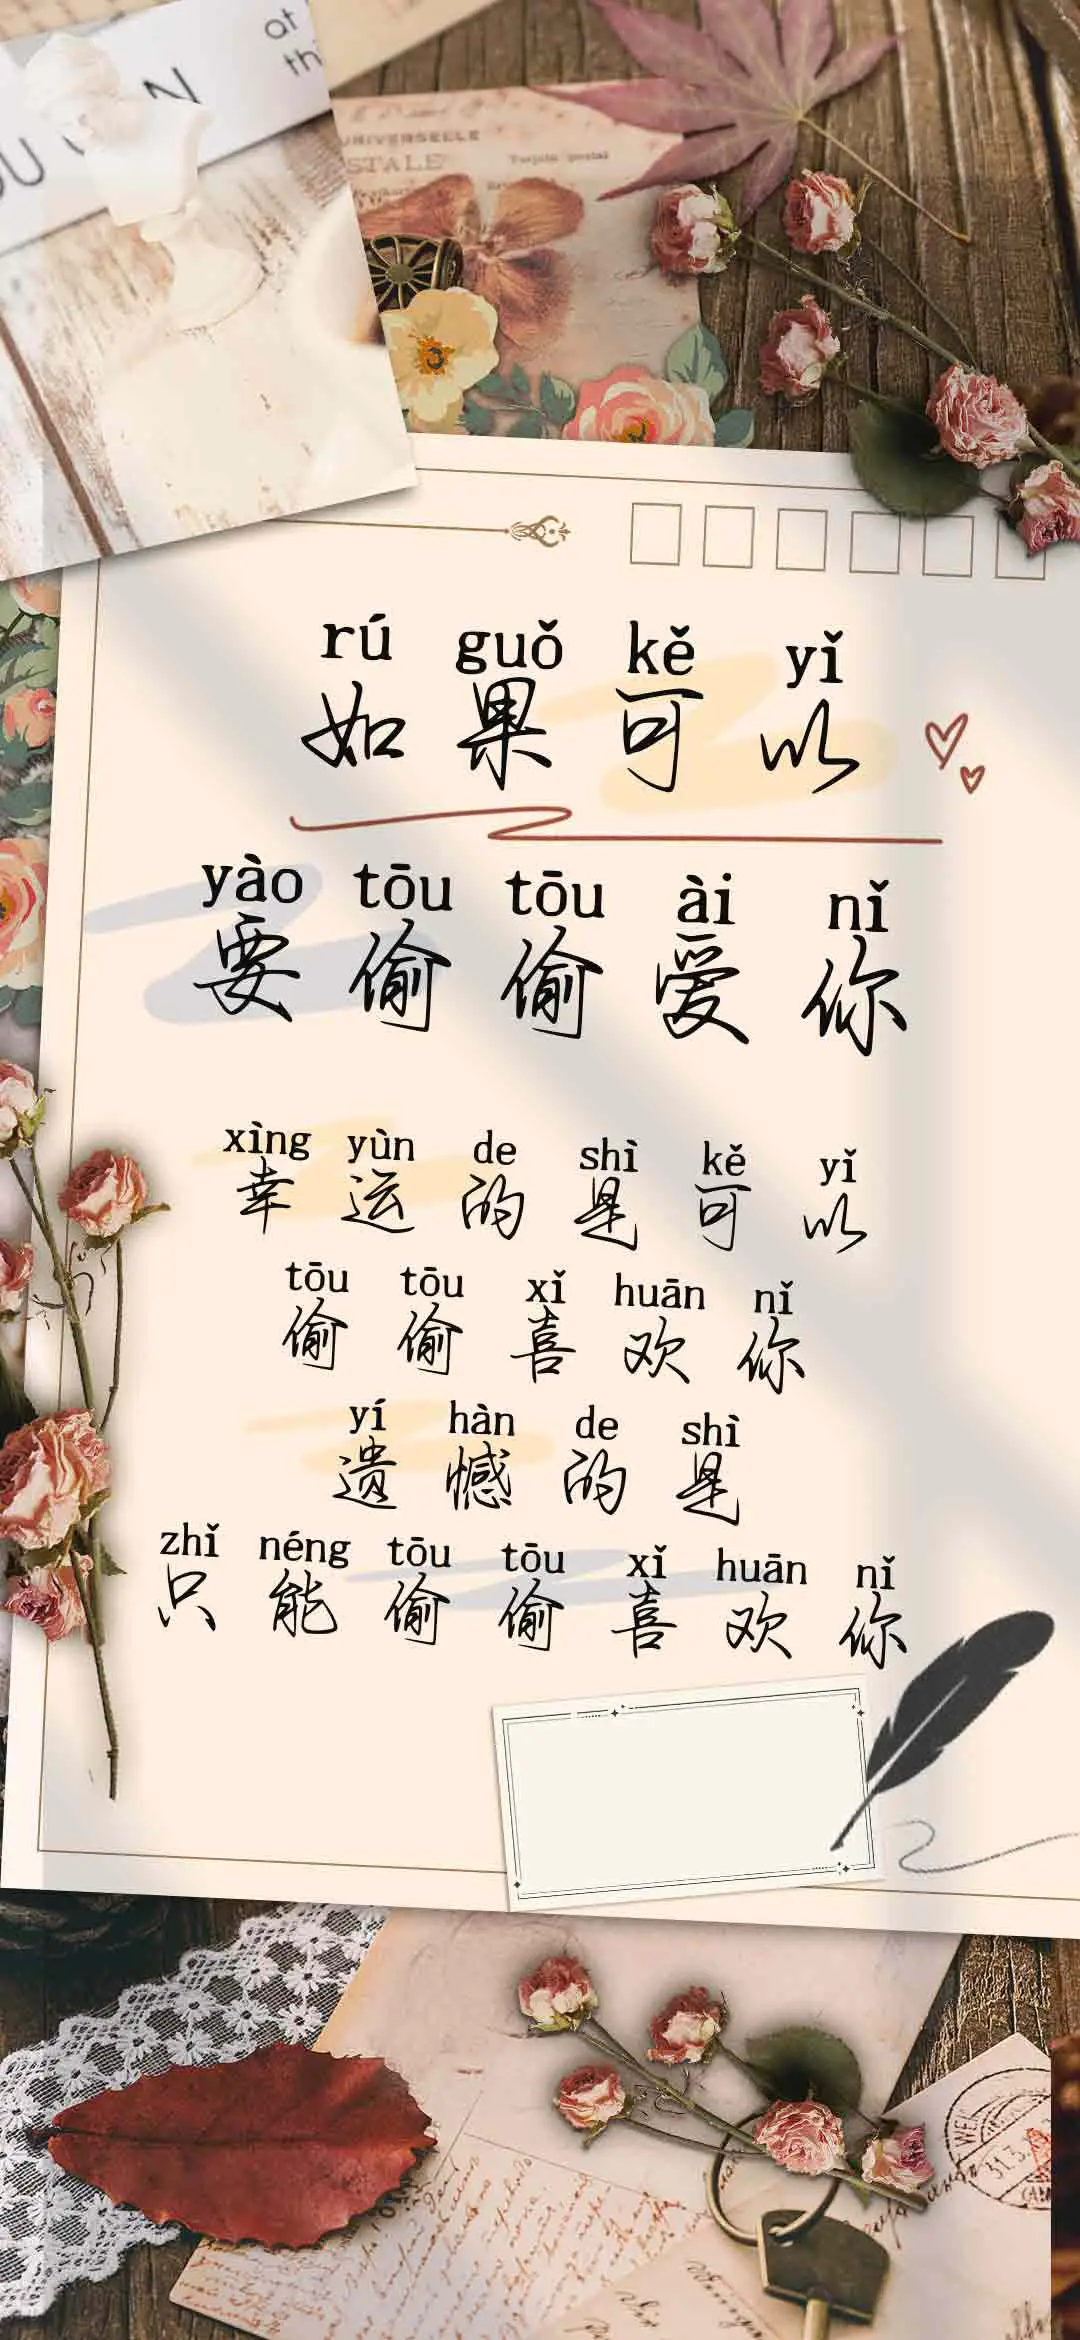 at
th
OU
N
UNIVERSELLE
STALE
Tarjeta postal
rú guǒ kě yǐ
如果可以
yào tōu tōu ài nǐ
要偷偷爱你
xìng yùn de shì kě yǐ
幸运的是可以
tōu tōu xǐ huān nǐ
偷偷喜欢你
yí hàn de shì
遗憾的是
zhǐ néng tōu tōu xǐ huān nǐ
只能偷偷喜欢你